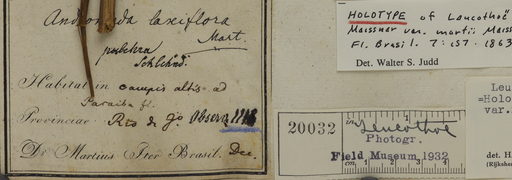 Andromeda laxiflora
Mart.
pulchra
Schlchtd.
Habitat in campis altis ad
Paraiba fl.
Provinciae Rio de Jo. Observ.
Dr Martius Iter Brasil. Dec.
HOLOTYPE of Leucothoë
Meissner var. martii Meiss
Fl. Brasil. 7:157. 1863
Det. Walter S. Judd
20032
in Leucothoe
Photogr.
Field Museum 1932
cm 1 2 3 4
Leu
=Holo
var.
det. H.
(Rijksher